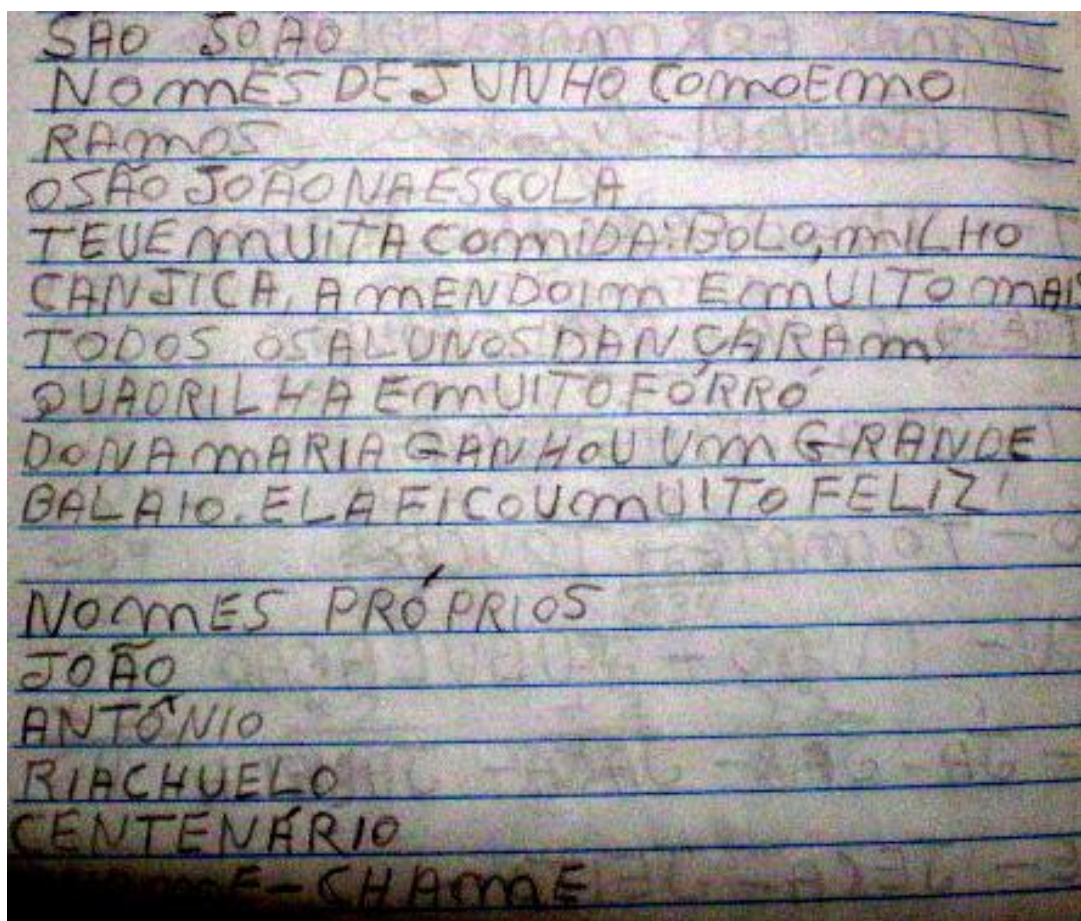 SÃO JOÃO
NO MÊS DE JUNHO COMOEMO
RAMOS
O SÃO JOÃO NA ESCOLA
TEVE MUITA COMIDA: BOLO, MILHO
CANJICA, AMENDOIM E MUITO MAIS
TODOS OS ALUNOS DANÇARAM
QUADRILHA E MUITO FÓRRÓ
DONA MARIA GANHOU UM GRANDE
BALAIO. ELA FICOU MUITO FELIZ!
NOMES PRÓPRIOS
JOÃO
ANTÔNIO
RIACHUELO
CENTENÁRIO
-CHAME